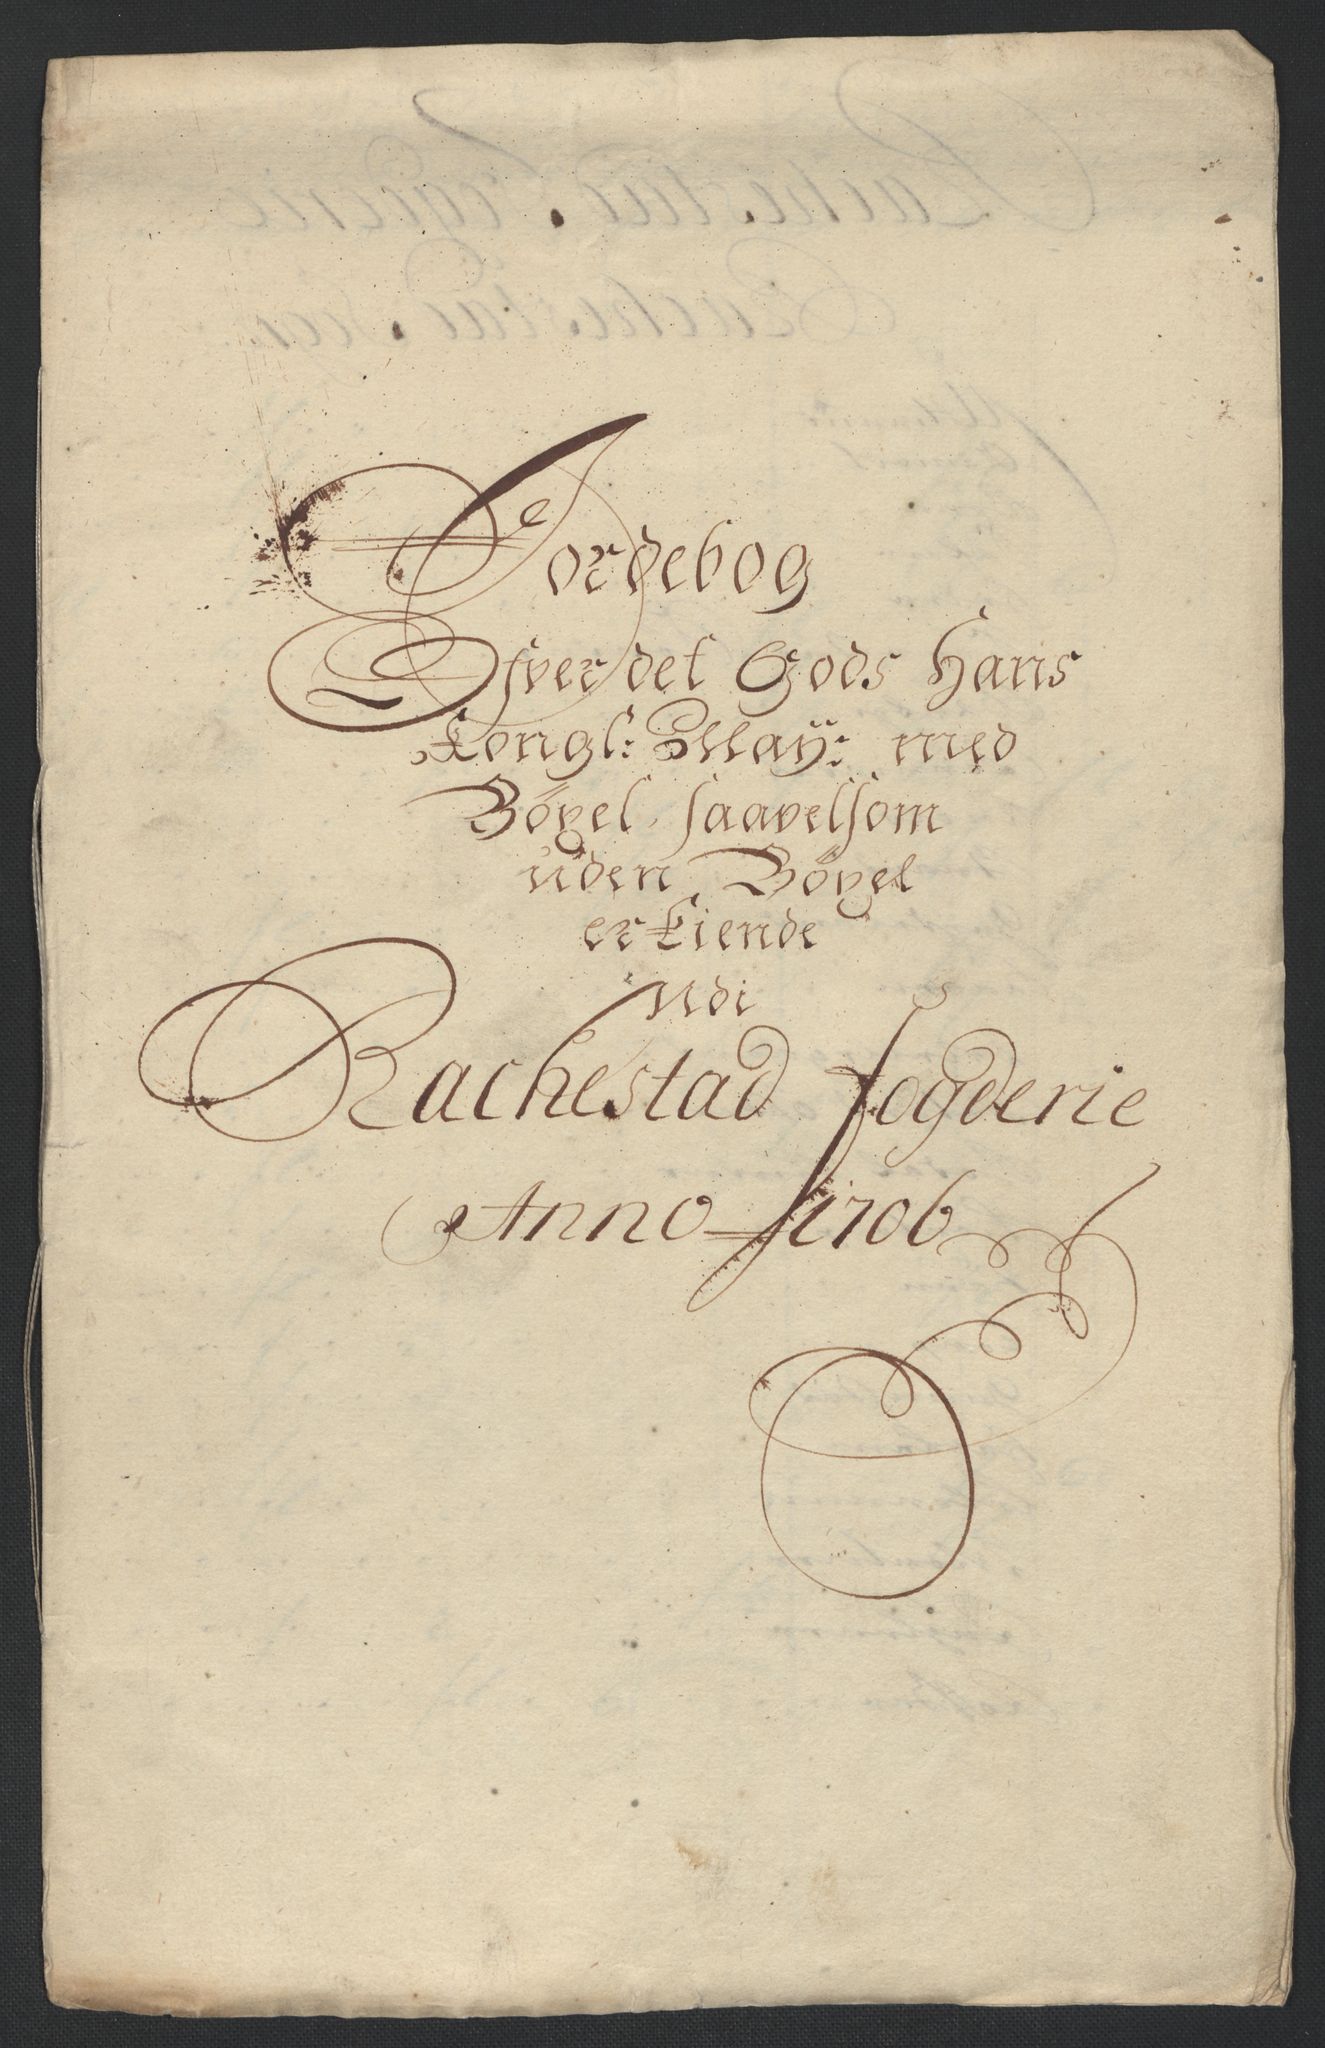 Jordebog
Ofver det Gods Hans
Kongl: May: med
Böxel saavelsom
uden Böxel
er Eiende
udi
Rachestad fogderie
Anno 1706